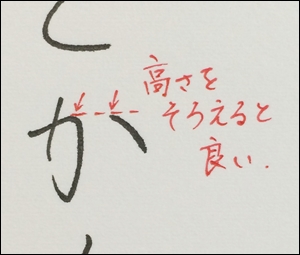 か
高さを
そろえると
良い.